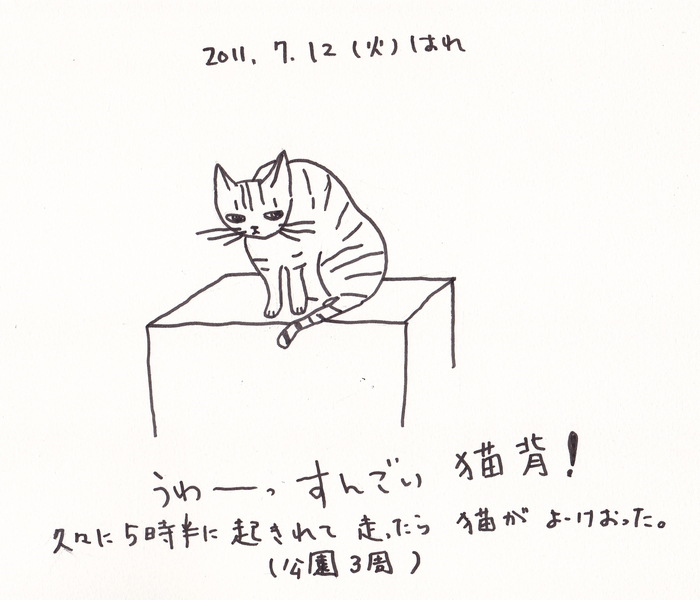 2011. 7. 12 (火) はれ
うわーっ すんごい 猫背!
久々に 5時半に 起きれて 走ったら 猫が よーけおった。
(公園 3周 )